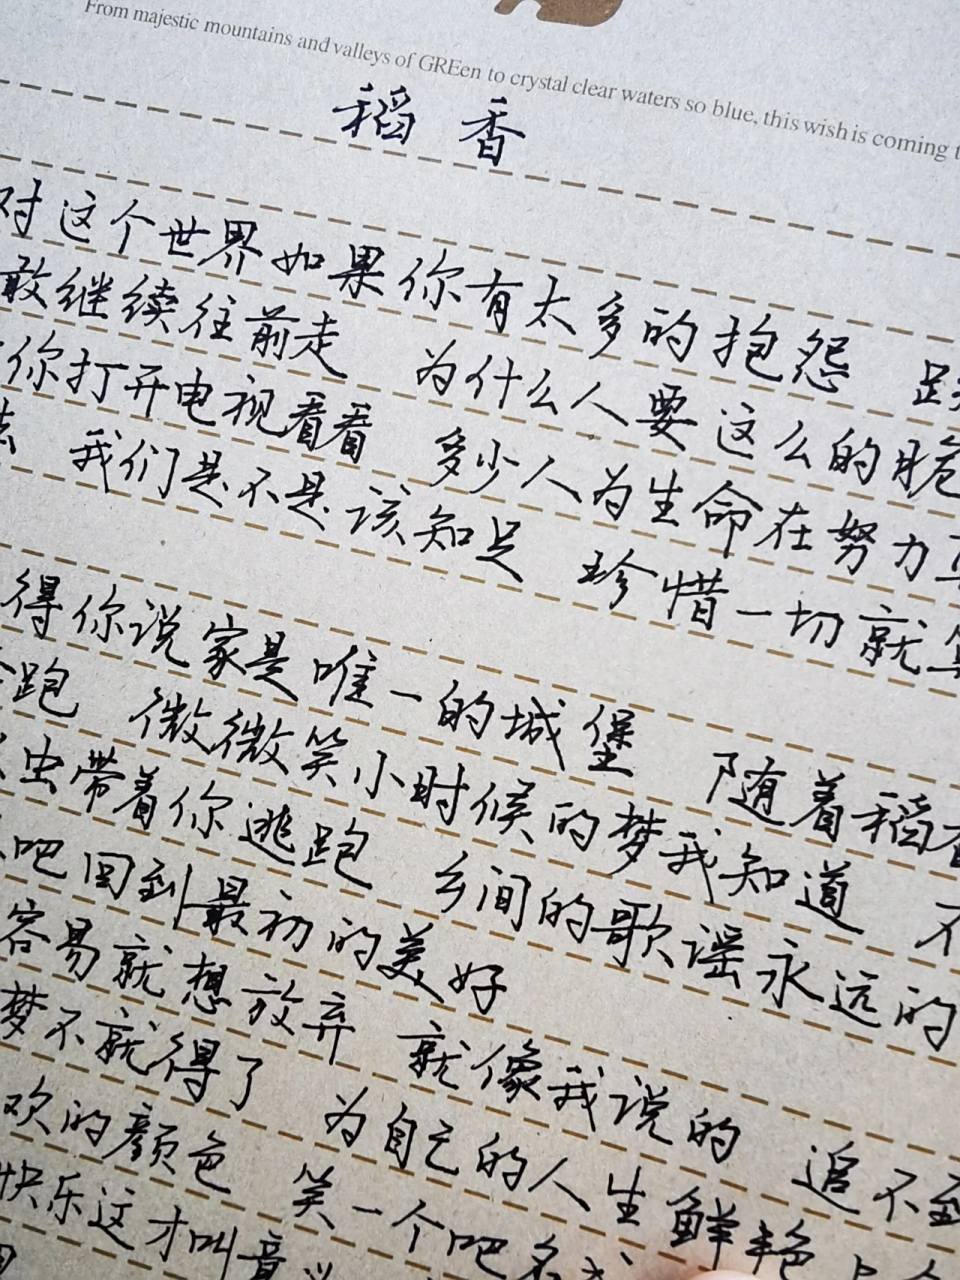 From majestic mountains and valleys of GREen to crystal clear waters so blue, this wish is coming
稻香
对这个世界如果你有太多的抱怨
敢继续往前走 为什么人要这么的脆
你打开电视看看 多少人为生命在努力
我们是不是该知足 珍惜一切就算
得你说家是唯一的城堡 随着稻香
跑 微微笑小时候的梦我知道 不
虫带着你逃跑 乡间的歌谣永远的
吧回到最初的美好
容易就想放弃 就像我说的 追不到
梦不就得了 为自己的人生鲜艳
欢的颜色 笑一个吧
快乐这才叫意